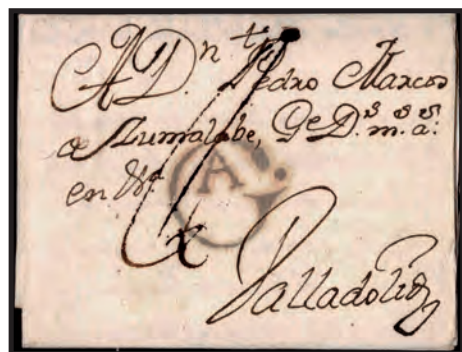 A D.n Pedro Marcos
a Zumalabe, G e D.s m.s a.s
en
A
Valladolid